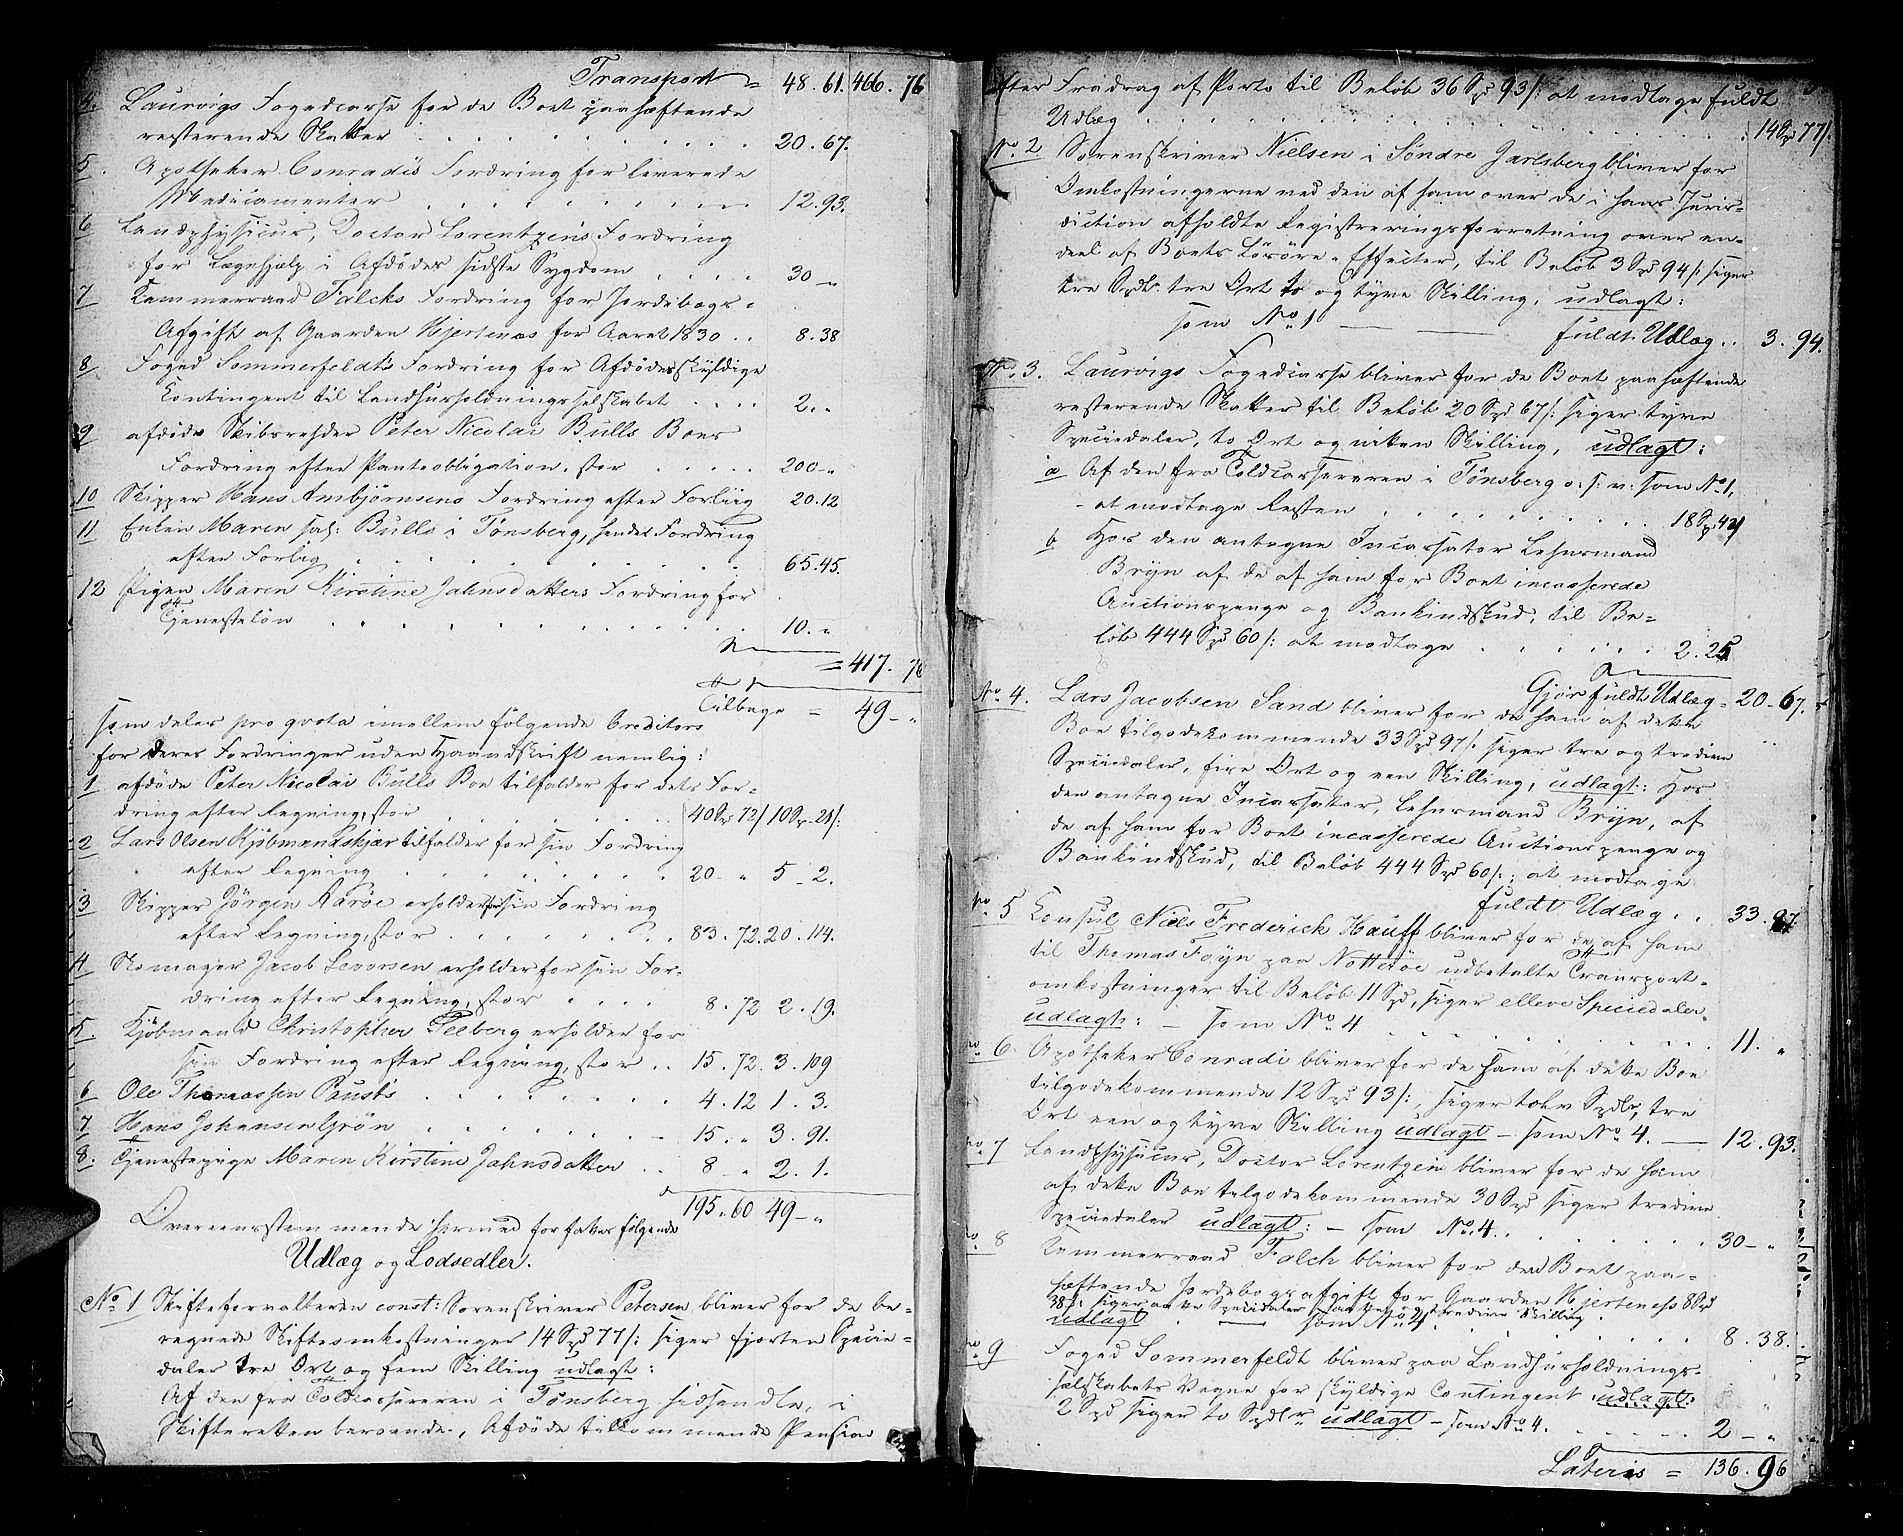 Transport = 48. 61. 466. 76
4. Laurvigs Fogedcasse for de Boet paahæftende
resterende Skatter . . . 20. 67.
5. Apotheker Conradis Fordring for leverede
Medicamenter . . . 12. 93.
6 Landphysicus, Doctor Lorentzens Fordring
for Lægehjælp i Afdødes sidste Sygdom . . . 30 „
7 Kammerraad Falcks Fordring for Jordebogs-
Afgift af Gaarden Hjertenæs for Aaret 1830 . . 8. 38
8 Foged Sommerfeldts Fordring for Afdødes skyldige
Contingent til Landhuusholdningsselskabet . . . . 2. „
9 afdøde Skibsrehder Peter Nicolai Bulls Boes
Fordring efter Panteobligation, stor . . . . 200 „
10 Skipper Hans Ambjørnsens Fordring efter Forliig 20. 12
11 Enken Maren sal: Bulls i Tønsberg, hendes Fordring
efter Forlig . . . 65. 45.
12 Pigen Maren Kirstine Jahnsdatters Fordring for
Tjenesteløn . . . 10. „
= 417. 76
Tilbage = 49 „
som deles pro qvota imellem følgende Creditorer
for deres Fordringer uden Haandskrift nemlig:
1 afdøde Peter Nicolai Bulls Boe tilfalder for dets For-
dring efter Regning, stor . . . 40 Spd 72/ 10 Spd 21/:
2 Lars Olsen Kjøbmandskjær tilfalder for sin Fordring
efter Regning . . . 20 „ 5 - 2.
3 Skipper Jørgen Aarøe erholder for sin Fordring
efter Regning, stor . . . 83. 72. 20. 114.
4 Skomager Jacob Levorsen erholder for sin For-
dring efter Regning, stor . . . 8. 72 2. 19.
5. Kjøbmand Christopher Seeberg erholder for
sin Fordring efter Regning, stor . . 15. 72. 3. 109
6 Ole Thomassen Pausts . . . 4. 12 1. 3.
7 Hans Johansen Grøn . . . 15. „ 3. 91.
8. Tjenestepige Maren Kirstine Jahnsdatter . . 8 „ 2. 1.
195. 60 49 „
Overeensstemmende hermed forfattes følgende
Udlæg og Lodsedler.
No 1 Skifteforvalteren const: Sorenskriver Petersen bliver for de be-
regnede Skifteomkostninger 14 Spd 77/: siger fjorten Specie-
daler tre Ort og fem Skilling udlagt:
Af den fra Toldcassereren i Tønsberg hidsendte, i
Skifteretten beroende, Afdøde tilkommende Pension
efter Fradrag af Porto til Beløb 36 Spd 93/: at modtage fuldt
Udlæg . . . 14 Spd 77/:
No 2. Sorenskriver Nielsen i Søndre Jarlsberg bliver for
Omkostningerne ved den af ham over de i hans Juris-
diction afholdte Registreringsforretning over en-
deel af Boets Løsøre-Effecter, til Beløb 3 Spd 94/: siger
tre Spdlr. tre Ort to og tyve Skilling, udlagt:
som No 1 — fuldt Udlæg . . 3. 94.
No 3. Laurvigs Fogedcasse bliver for de Boet paahæftende
resterende Skatter til Beløb 20 Spd 67/: siger tyve
Speciedaler, to Ort og nitten Skilling, udlagt:
a Af den fra Toldcassereren i Tønsberg o: s: v: som No 1,
- at modtage Resten . . . 18 Sp. 42/
b Hos den antagne Incassator Lehnsmand
Bryn af de af ham for Boet incasserede
Auctionspenge og Bankindskud, til Be-
løb 444 Spd 60/: at modtage . . . 2. 25
Gjør fuldt Udlæg = 20. 67.
No 4. Lars Jacobsen Sand bliver for de ham af dette
Boe tilgodekommende 33 Spd 97/: siger tre og tredive
Speciedaler, fire Ort og een Skilling, udlagt: Hos
den antagne Incassator, Lehnsmand Bryn, af
de af ham for Boet incasserede Auctionspenge og
Bankindskud, til Beløb 444 Spd 60/: at modtage
fuldt Udlæg . . 33. 97.
No 5 Consul Niels Frederick Hauff bliver for de af ham
til Thomas Føyn paa Nøtterøe udbetalte Transport-
omkostninger til Beløb 11 Spd, siger elleve Speciedaler
udlagt: - som No 4 . . . 11. „
No 6. Apotheker Conradi bliver for de ham af dette Boe
tilgodekommende 12 Spd 93/:, siger tolv Spdlr, tre
Ort een og tyve Skilling udlagt - som No 4. — 12. 93.
No 7 Landphysicus, Doctor Lorentzen bliver for de ham
af dette Boe tilgodekommende 30 Spd siger tredive
Speciedaler udlagt: - som No 4. . . . 30 „
No 8 Kammerraad Falch bliver for den Boet paa-
hæftende Jordebogsafgift for Gaarden Hjertenæss 8 Spd
38/: siger aatte Speciedaler otte og tredive Skilling
udlagt — som No 4. . . . 8. 38.
No 9 Foged Sommerfeldt bliver paa Landhuusholdnings-
selskabets Vegne for skyldige Contingent udlagt:
2 Spd siger to Spdlr udlagt - som No 4. . . . 2 „
Lateris = 136. 96